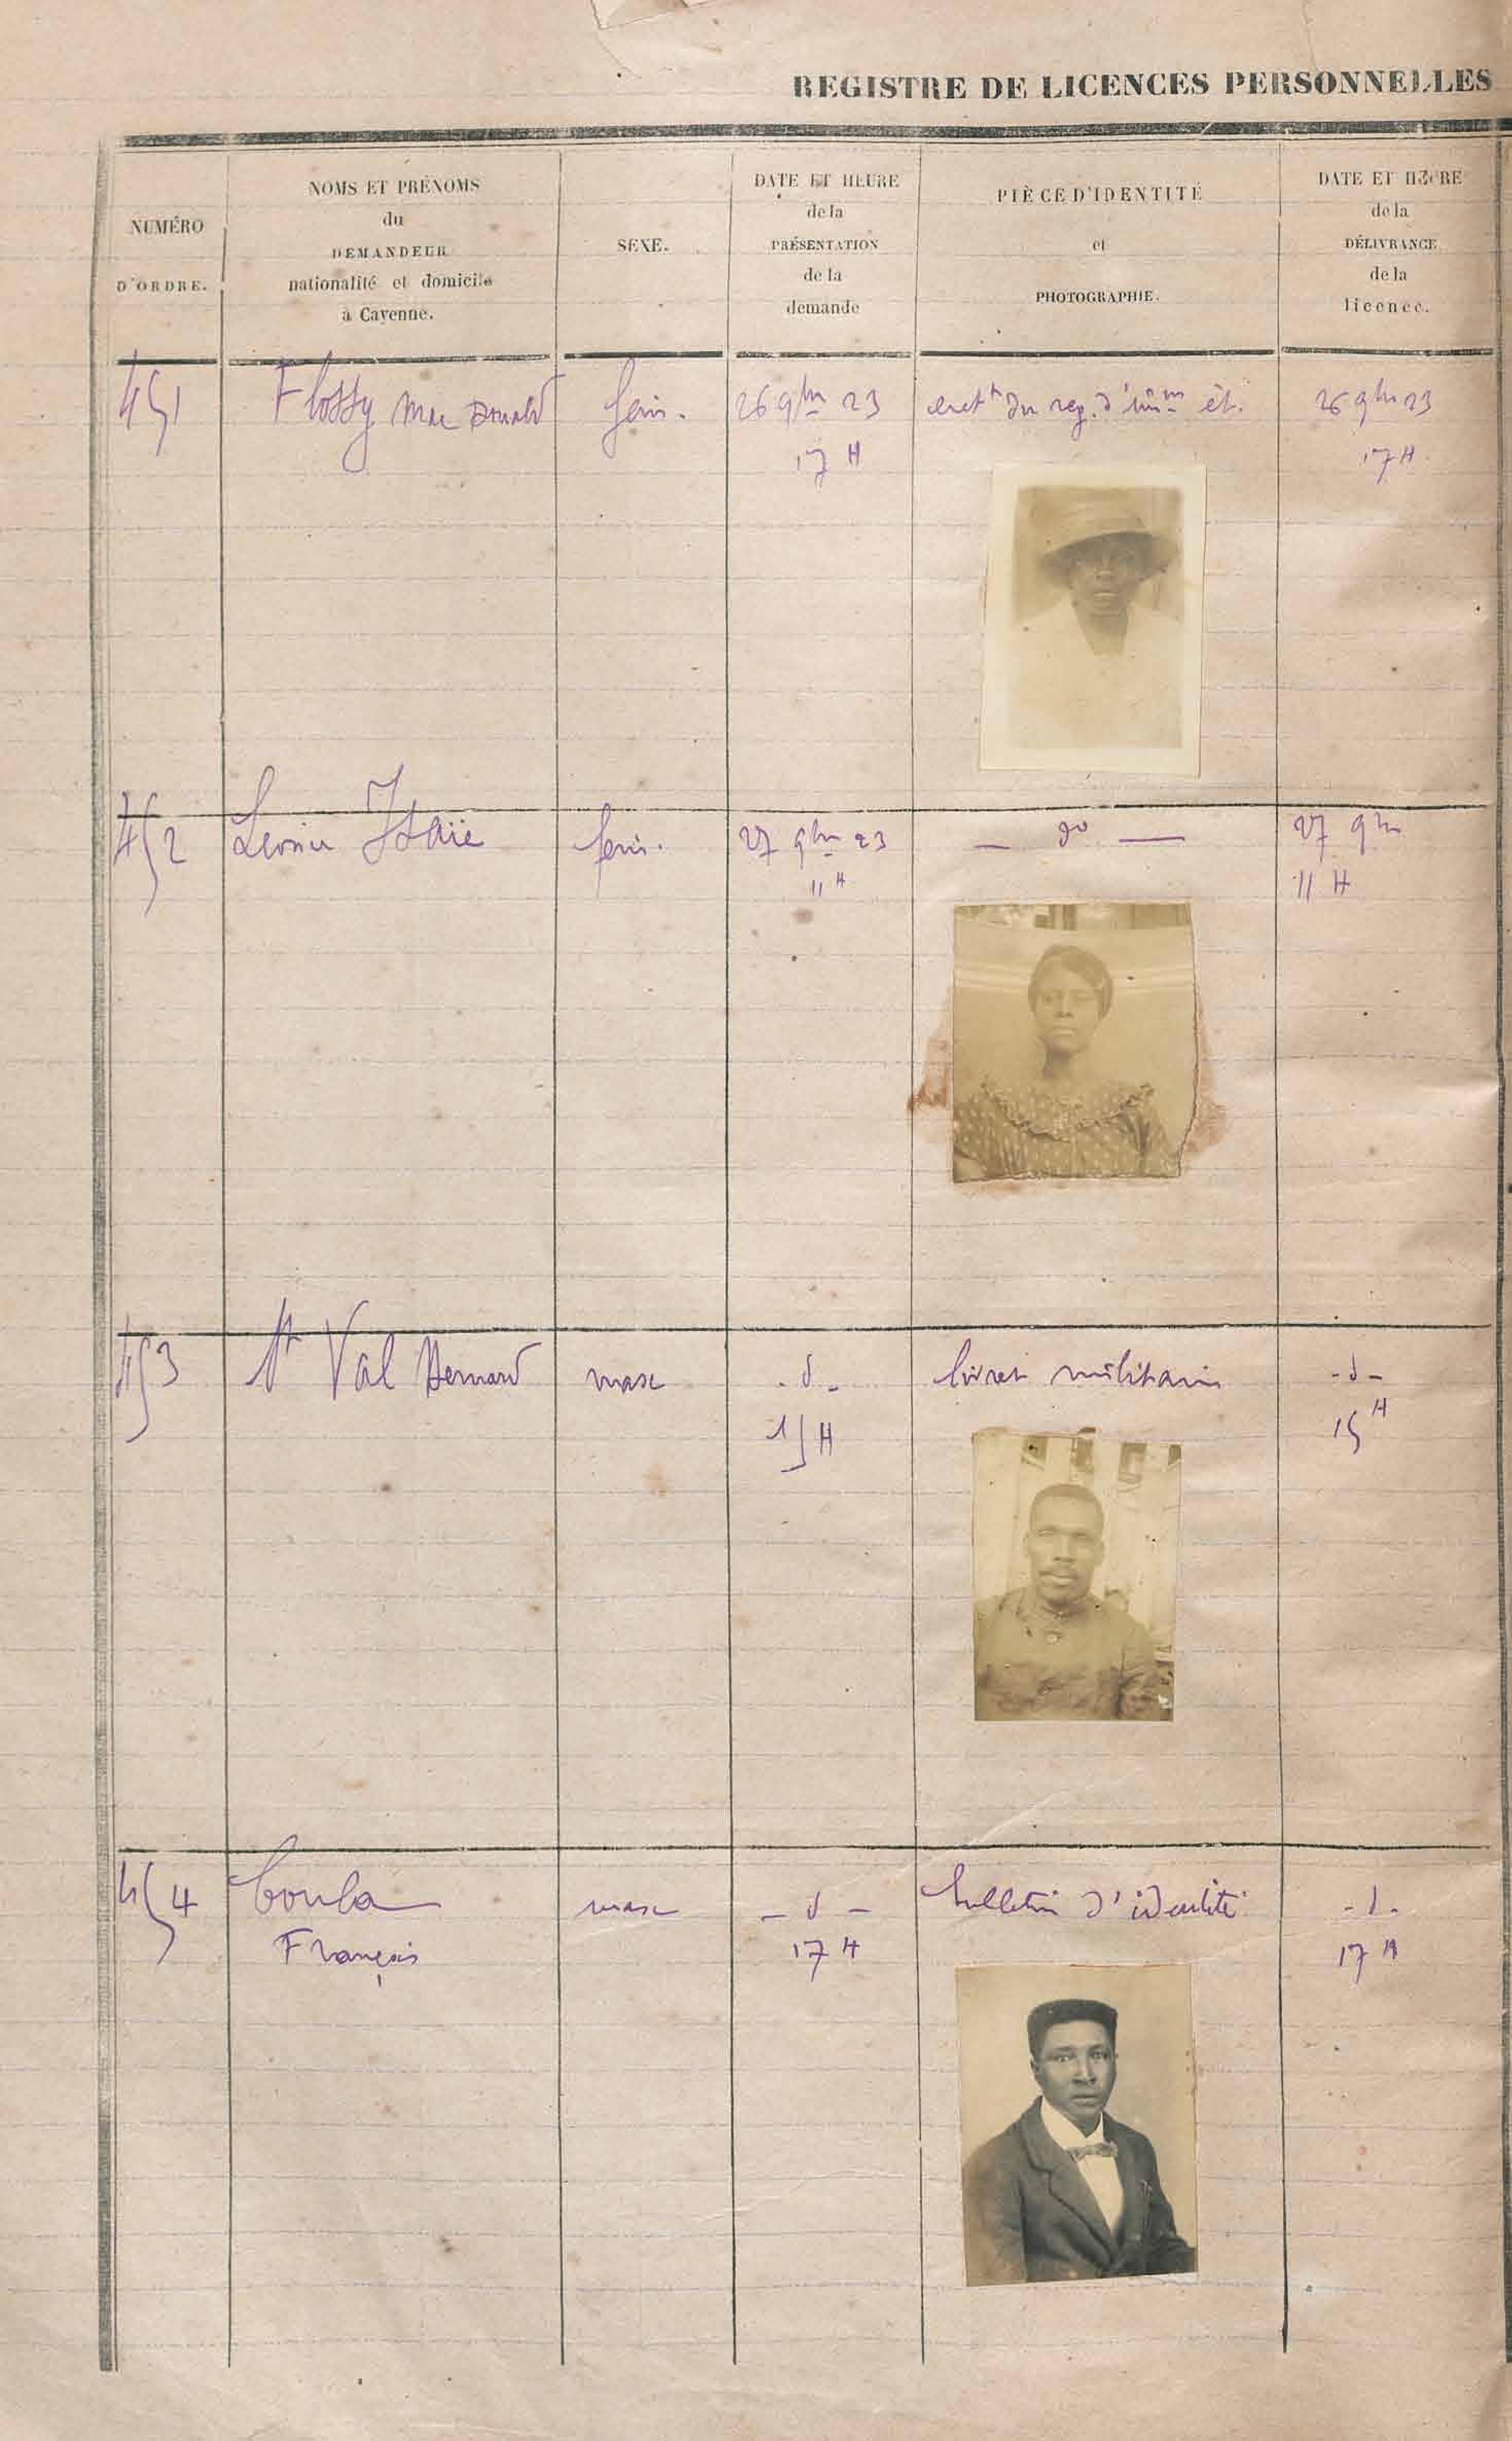 REGISTRE DE LICENCES PERSONNELLES
NUMÉRO
D'ORDRE.
NOMS ET PRÉNOMS
du
DEMANDEUR
nationalité et domicile
à Cayenne.
SEXE.
DATE ET HEURE
de la
PRÉSENTATION
de la
demande
PIÈCE D'IDENTITÉ
et
PHOTOGRAPHIE.
DATE ET HEURE
de la
DÉLIVRANCE
de la
licence.
451 Flossy Mac Donald fém. 26 9bre 23 du reg. d'imm et. 26 9bre 23
17 H 17 H
452 fém. 27 9bre 23 — do — 27 9bre
11 H 11 H
453 St Val Bernard masc - d - livret militaire - d -
15 H 15 H
454 Coula masc - d - bulletin d'identité - d -
François 17 H 17 H